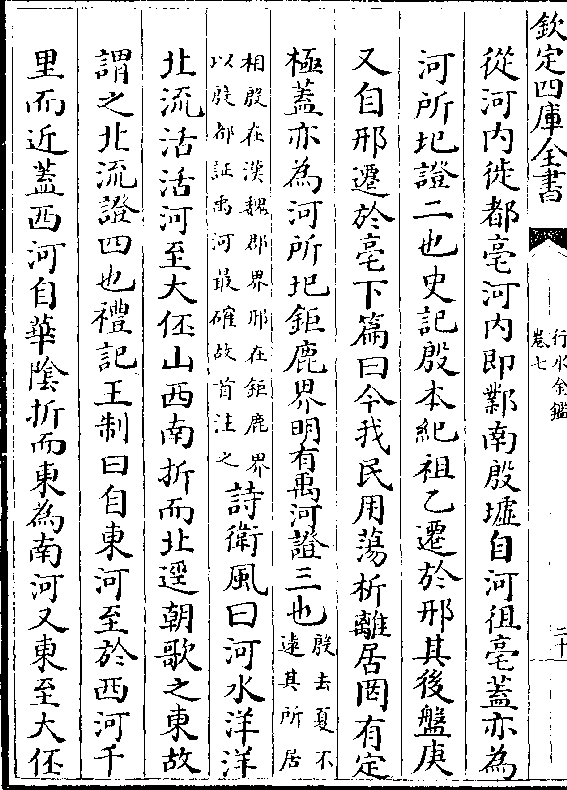 欽定四庫全書
行水金鑑
卷七
二十
從河内徙都亳河内即鄴南殷墟自河徂亳蓋亦為
河所圮證二也史記殷本紀祖乙遷於邢其後盤庚
又自邢遷於亳下篇曰今我民用蕩析離居罔有定
極蓋亦為河所圮鉅鹿界明有禹河證三也殷去夏不
遠其所居
相殷在漢魏郡界邢在鉅鹿界
以殷都証禹河最確故首注之詩衛風曰河水洋洋
北流活活河至大伾山西南折而北逕朝歌之東故
謂之北流證四也禮記王制曰自東河至於西河千
里而近蓋西河自華陰折而東為南河又東至大伾